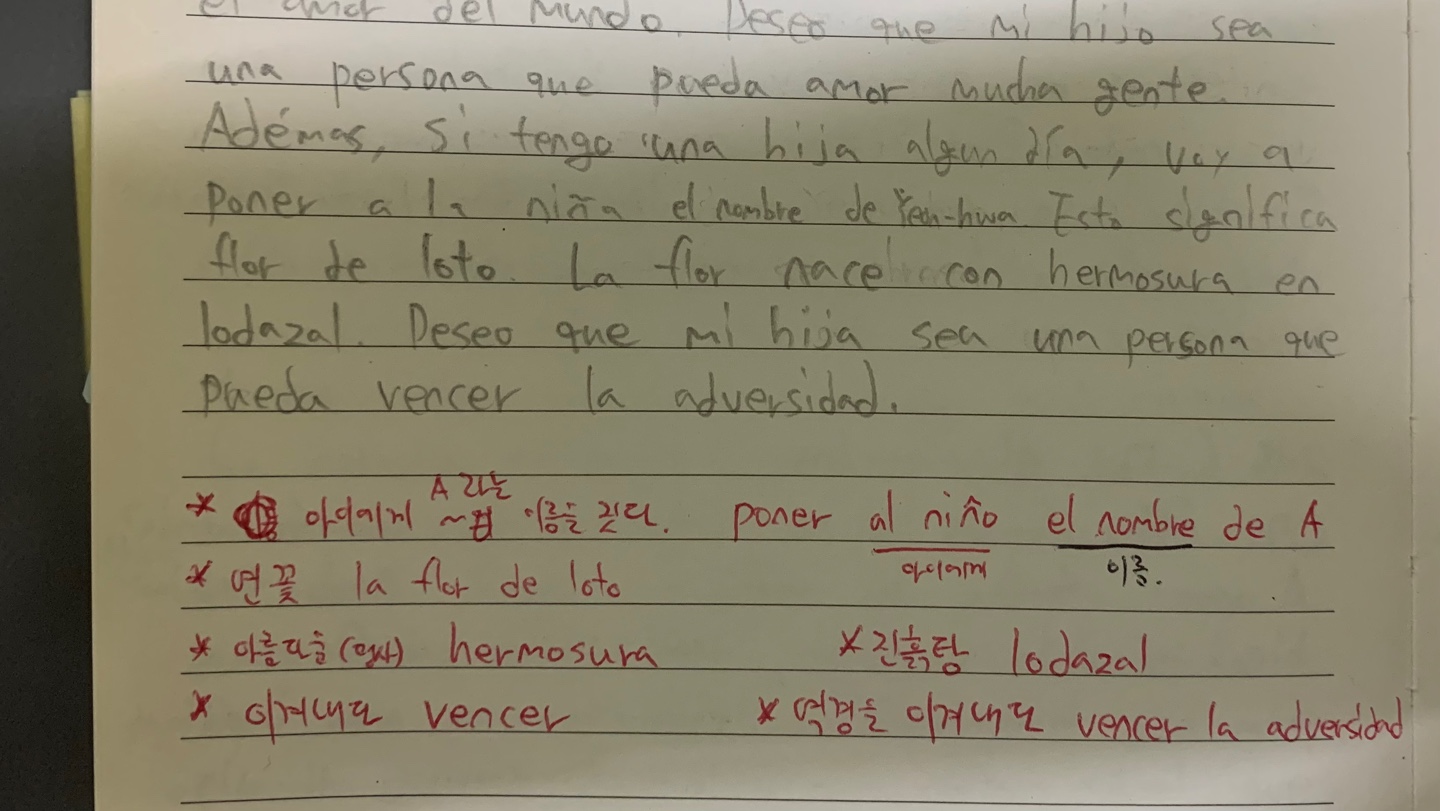 el amor del mundo. Deseo que mi hijo sea
una persona que pueda amor mucha gente.
Adémas, si tengo una hija algun día, voy a
poner a la niña el nombre de Yeon-hwa Esto significa
flor de loto. La flor nace con hermosura en
lodazal. Deseo que mi hija sea una persona que
pueda vencer la adversidad.
* 아이에게 ~ A 라는 이름을 짓다. poner al niño el nombre de A
아이에게 이름.
* 연꽃 la flor de loto
* 아름다움 (명사) hermosura * 진흙탕 lodazal
* 이겨내다 vencer * 역경을 이겨내다 vencer la adversidad